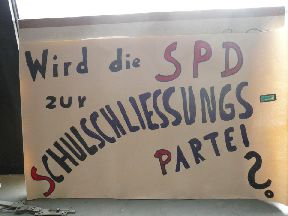 Wird die SPD
zur
SCHULSCHLIESSUNGS
PARTEI ?